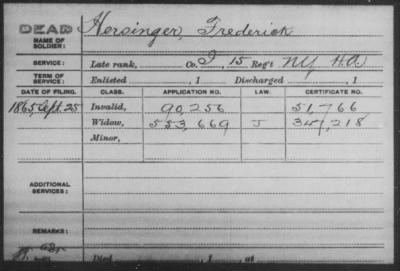 DEAD
NAME OF SOLDIER: Hersinger, Frederick
SERVICE: Late rank, Co. I, 15 Reg't NY H.A.
TERM OF SERVICE: Enlisted , 1 Discharged , 1
DATE OF FILING. CLASS. APPLICATION NO. LAW. CERTIFICATE NO.
1865, Sept. 25 Invalid, 90,256 51,766
Widow, 553,669 J 347,218
Minor,
ADDITIONAL SERVICES:
REMARKS:
Died , 1 , at